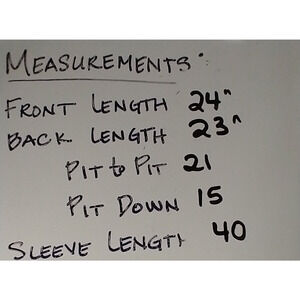 MEASUREMENTS:
FRONT LENGTH 24"
BACK LENGTH 23"
PIT to PIT 21
PIT DOWN 15
SLEEVE LENGTH 40